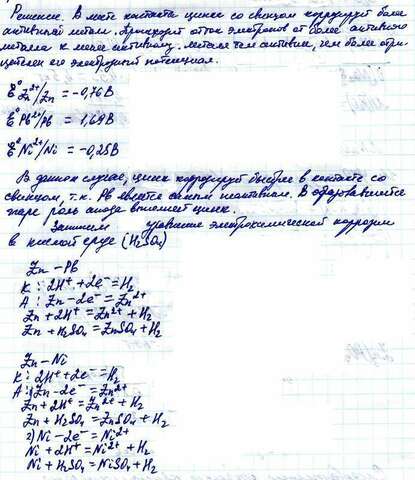 Решение. В месте контакта цинка со свинцом корродирует более
активный металл. Происходит отток электронов от более активного
металла к менее активному. Металл тем активнее, чем более отри-
цателен его электродный потенциал.
E⁰Zn²⁺/Zn = -0,76В
E⁰Pb²⁺/Pb = 1,69В
E⁰Ni²⁺/Ni = -0,25В
В данном случае, цинк корродирует быстрее в контакте со
свинцом, т.к. Pb является самым неактивным. В образовавшейся
паре роль анода выполняет цинк.
Запишем уравнение электрохимической коррозии
в кислой среде (H₂SO₄)
Zn-Pb
К: 2H⁺ + 2e⁻ = H₂
А: Zn - 2e⁻ = Zn²⁺
Zn + 2H⁺ = Zn²⁺ + H₂
Zn + H₂SO₄ = ZnSO₄ + H₂
Zn-Ni
К: 2H⁺ + 2e⁻ = H₂
А: 1) Zn - 2e⁻ = Zn²⁺
Zn + 2H⁺ = Zn²⁺ + H₂
Zn + H₂SO₄ = ZnSO₄ + H₂
2) Ni - 2e⁻ = Ni²⁺
Ni + 2H⁺ = Ni²⁺ + H₂
Ni + H₂SO₄ = NiSO₄ + H₂